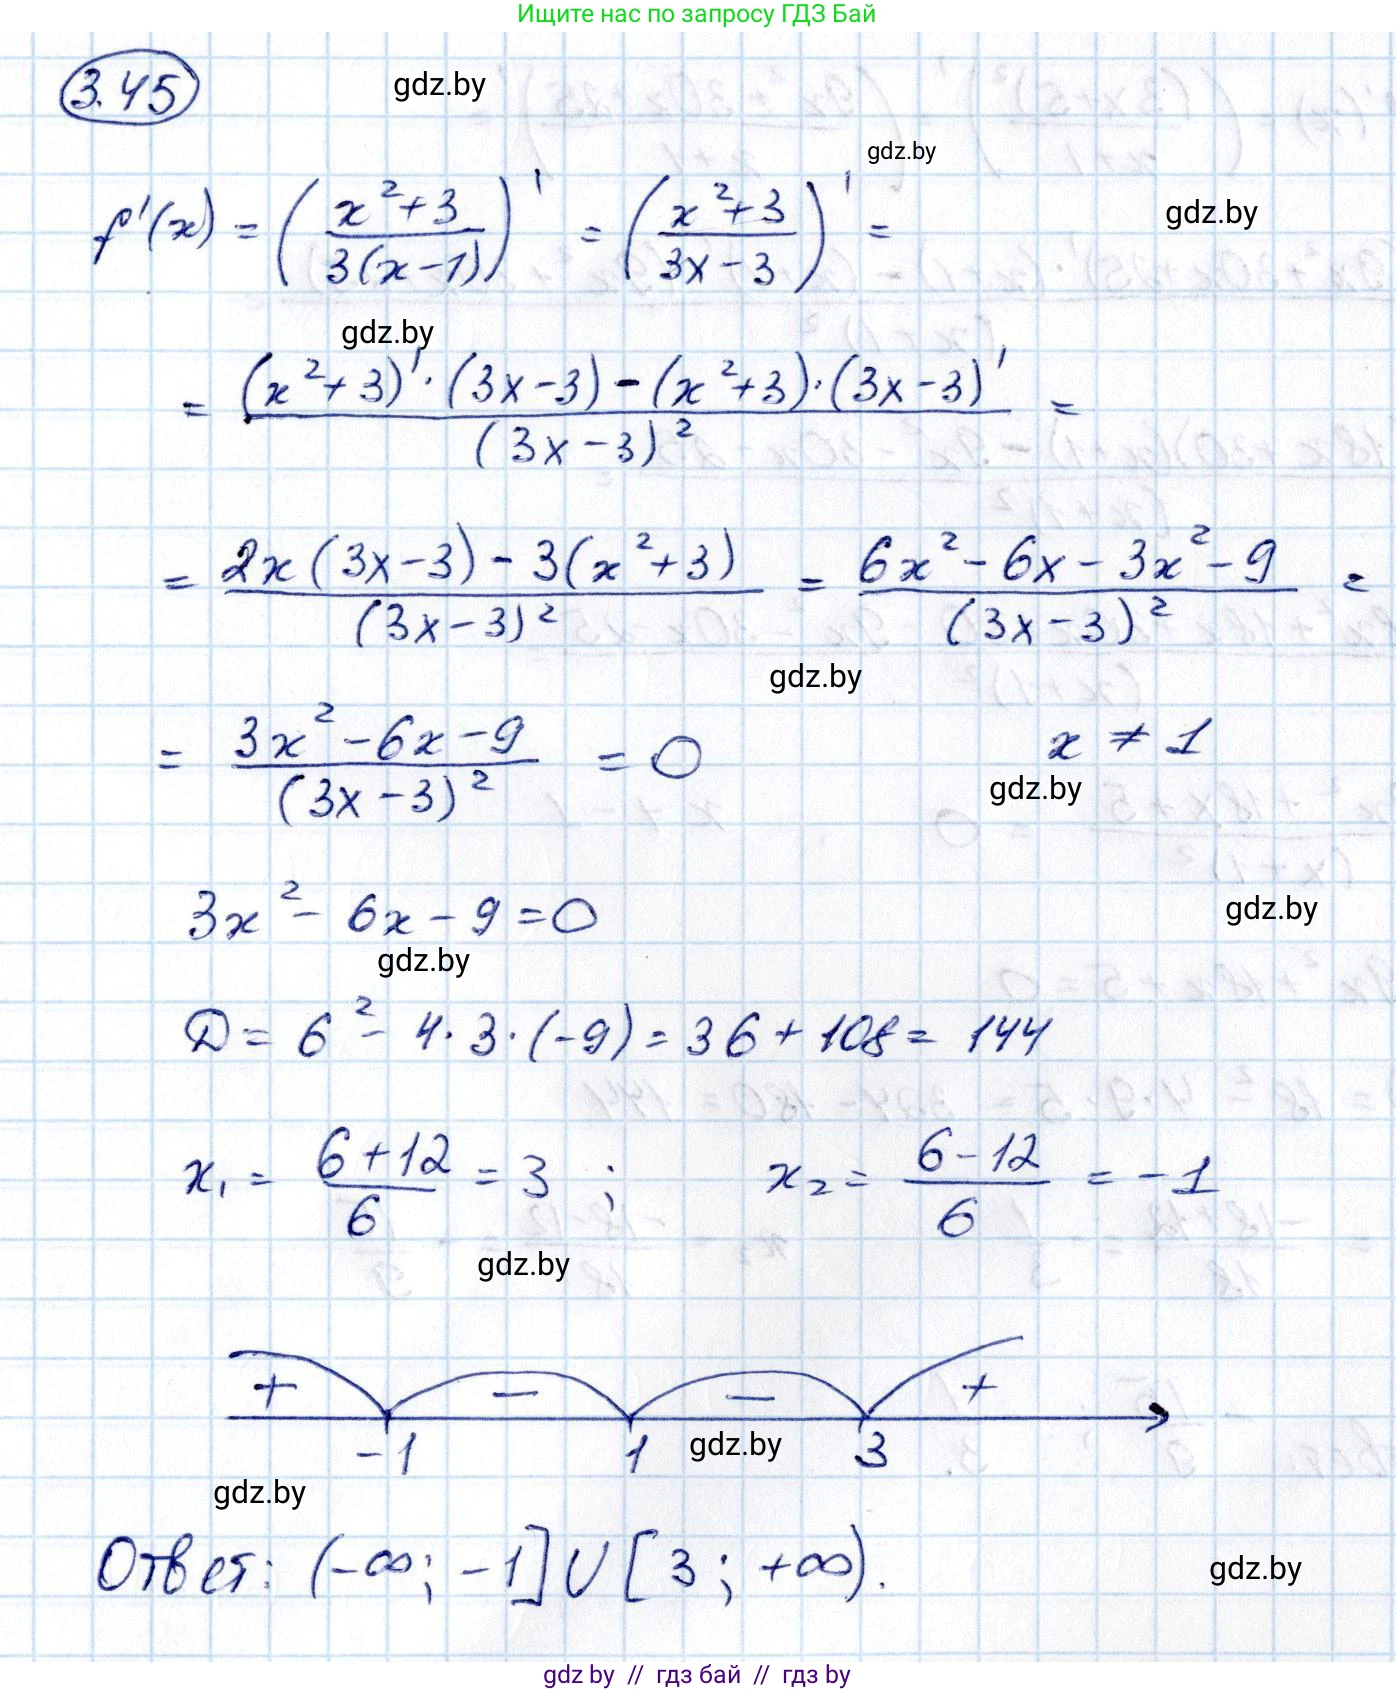 Ищите нас по запросу ГДЗ Бай
3.45
gdz.by
gdz.by
gdz.by
f'(x) = ( (x² + 3) / (3(x - 1)) )' = ( (x² + 3) / (3x - 3) )' =
gdz.by
= ((x² + 3)' · (3x - 3) - (x² + 3) · (3x - 3)') / (3x - 3)² =
= (2x(3x - 3) - 3(x² + 3)) / (3x - 3)² = (6x² - 6x - 3x² - 9) / (3x - 3)² =
gdz.by
= (3x² - 6x - 9) / (3x - 3)² = 0 x ≠ 1
gdz.by
3x² - 6x - 9 = 0
gdz.by
gdz.by
D = 6² - 4 · 3 · (-9) = 36 + 108 = 144
x₁ = (6 + 12) / 6 = 3 ; x₂ = (6 - 12) / 6 = -1
gdz.by
+ − − +
-1 1 3
gdz.by
gdz.by
Ответ: (-∞; -1] ∪ [3; +∞).
gdz.by
gdz.by // гдз бай // гдз by